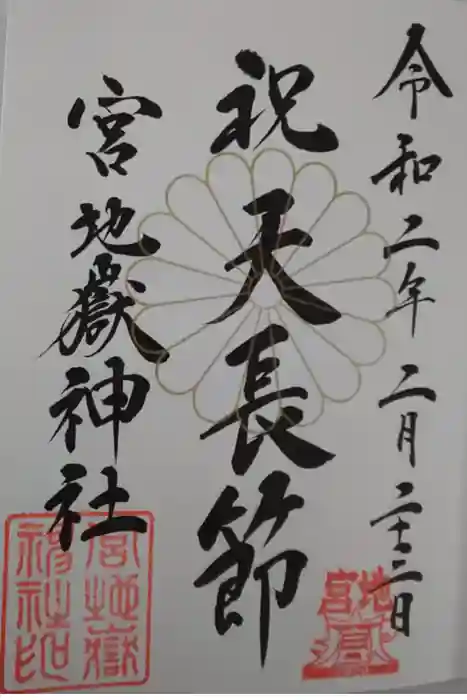 令和二年二月二十三日
祝天長節
宮地嶽神社
宮地嶽
神社印
宮地